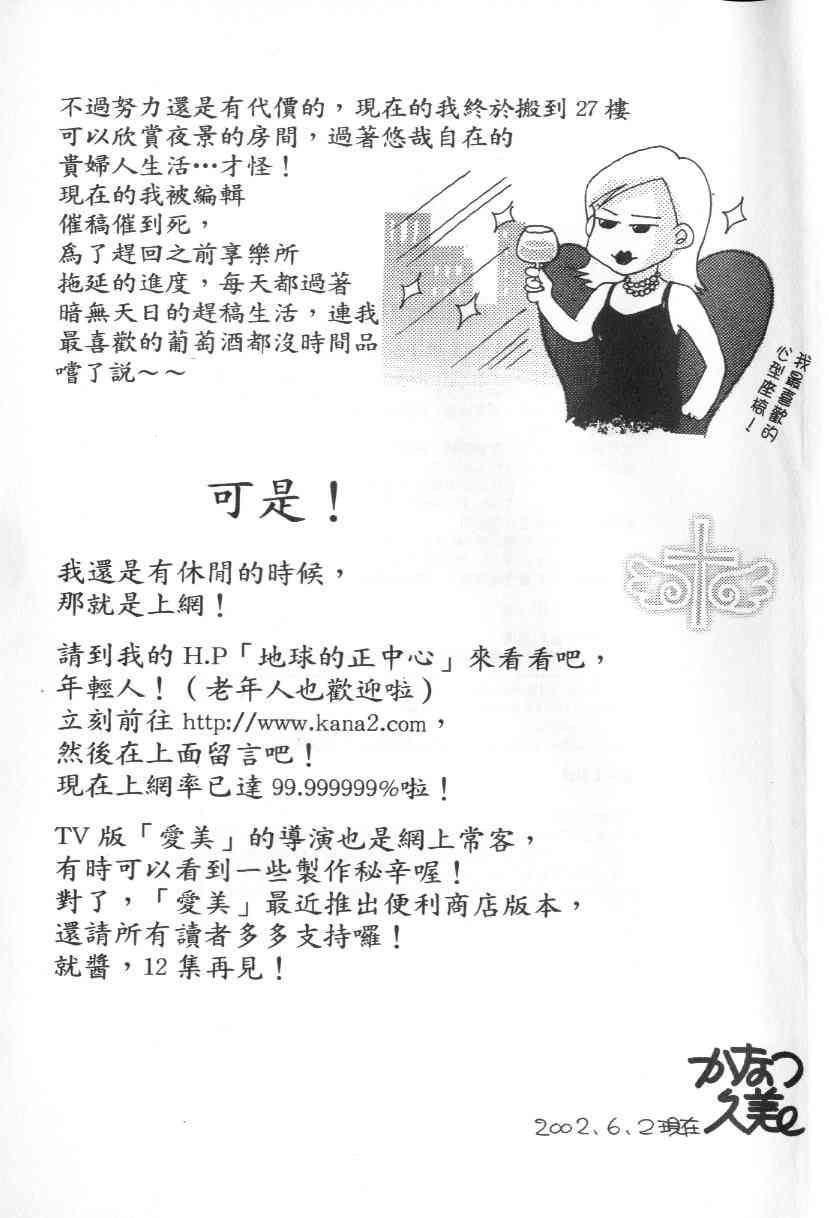 不過努力還是有代價的，現在的我終於搬到 27 樓
可以欣賞夜景的房間，過著悠哉自在的
貴婦人生活…才怪！
現在的我被編輯
催稿催到死，
為了趕回之前享樂所
拖延的進度，每天都過著
暗無天日的趕稿生活，連我
最喜歡的葡萄酒都沒時間品
嚐了說～～
我最喜歡的
心型座椅！
可是！
我還是有休閒的時候，
那就是上網！
請到我的 H.P「地球的正中心」來看看吧，
年輕人！（老年人也歡迎啦）
立刻前往 http://www.kana2.com，
然後在上面留言吧！
現在上網率已達 99.999999%啦！
TV 版「愛美」的導演也是網上常客，
有時可以看到一些製作秘辛喔！
對了，「愛美」最近推出便利商店版本，
還請所有讀者多多支持囉！
就醬，12 集再見！
かなつ
久美
2002、6、2現在